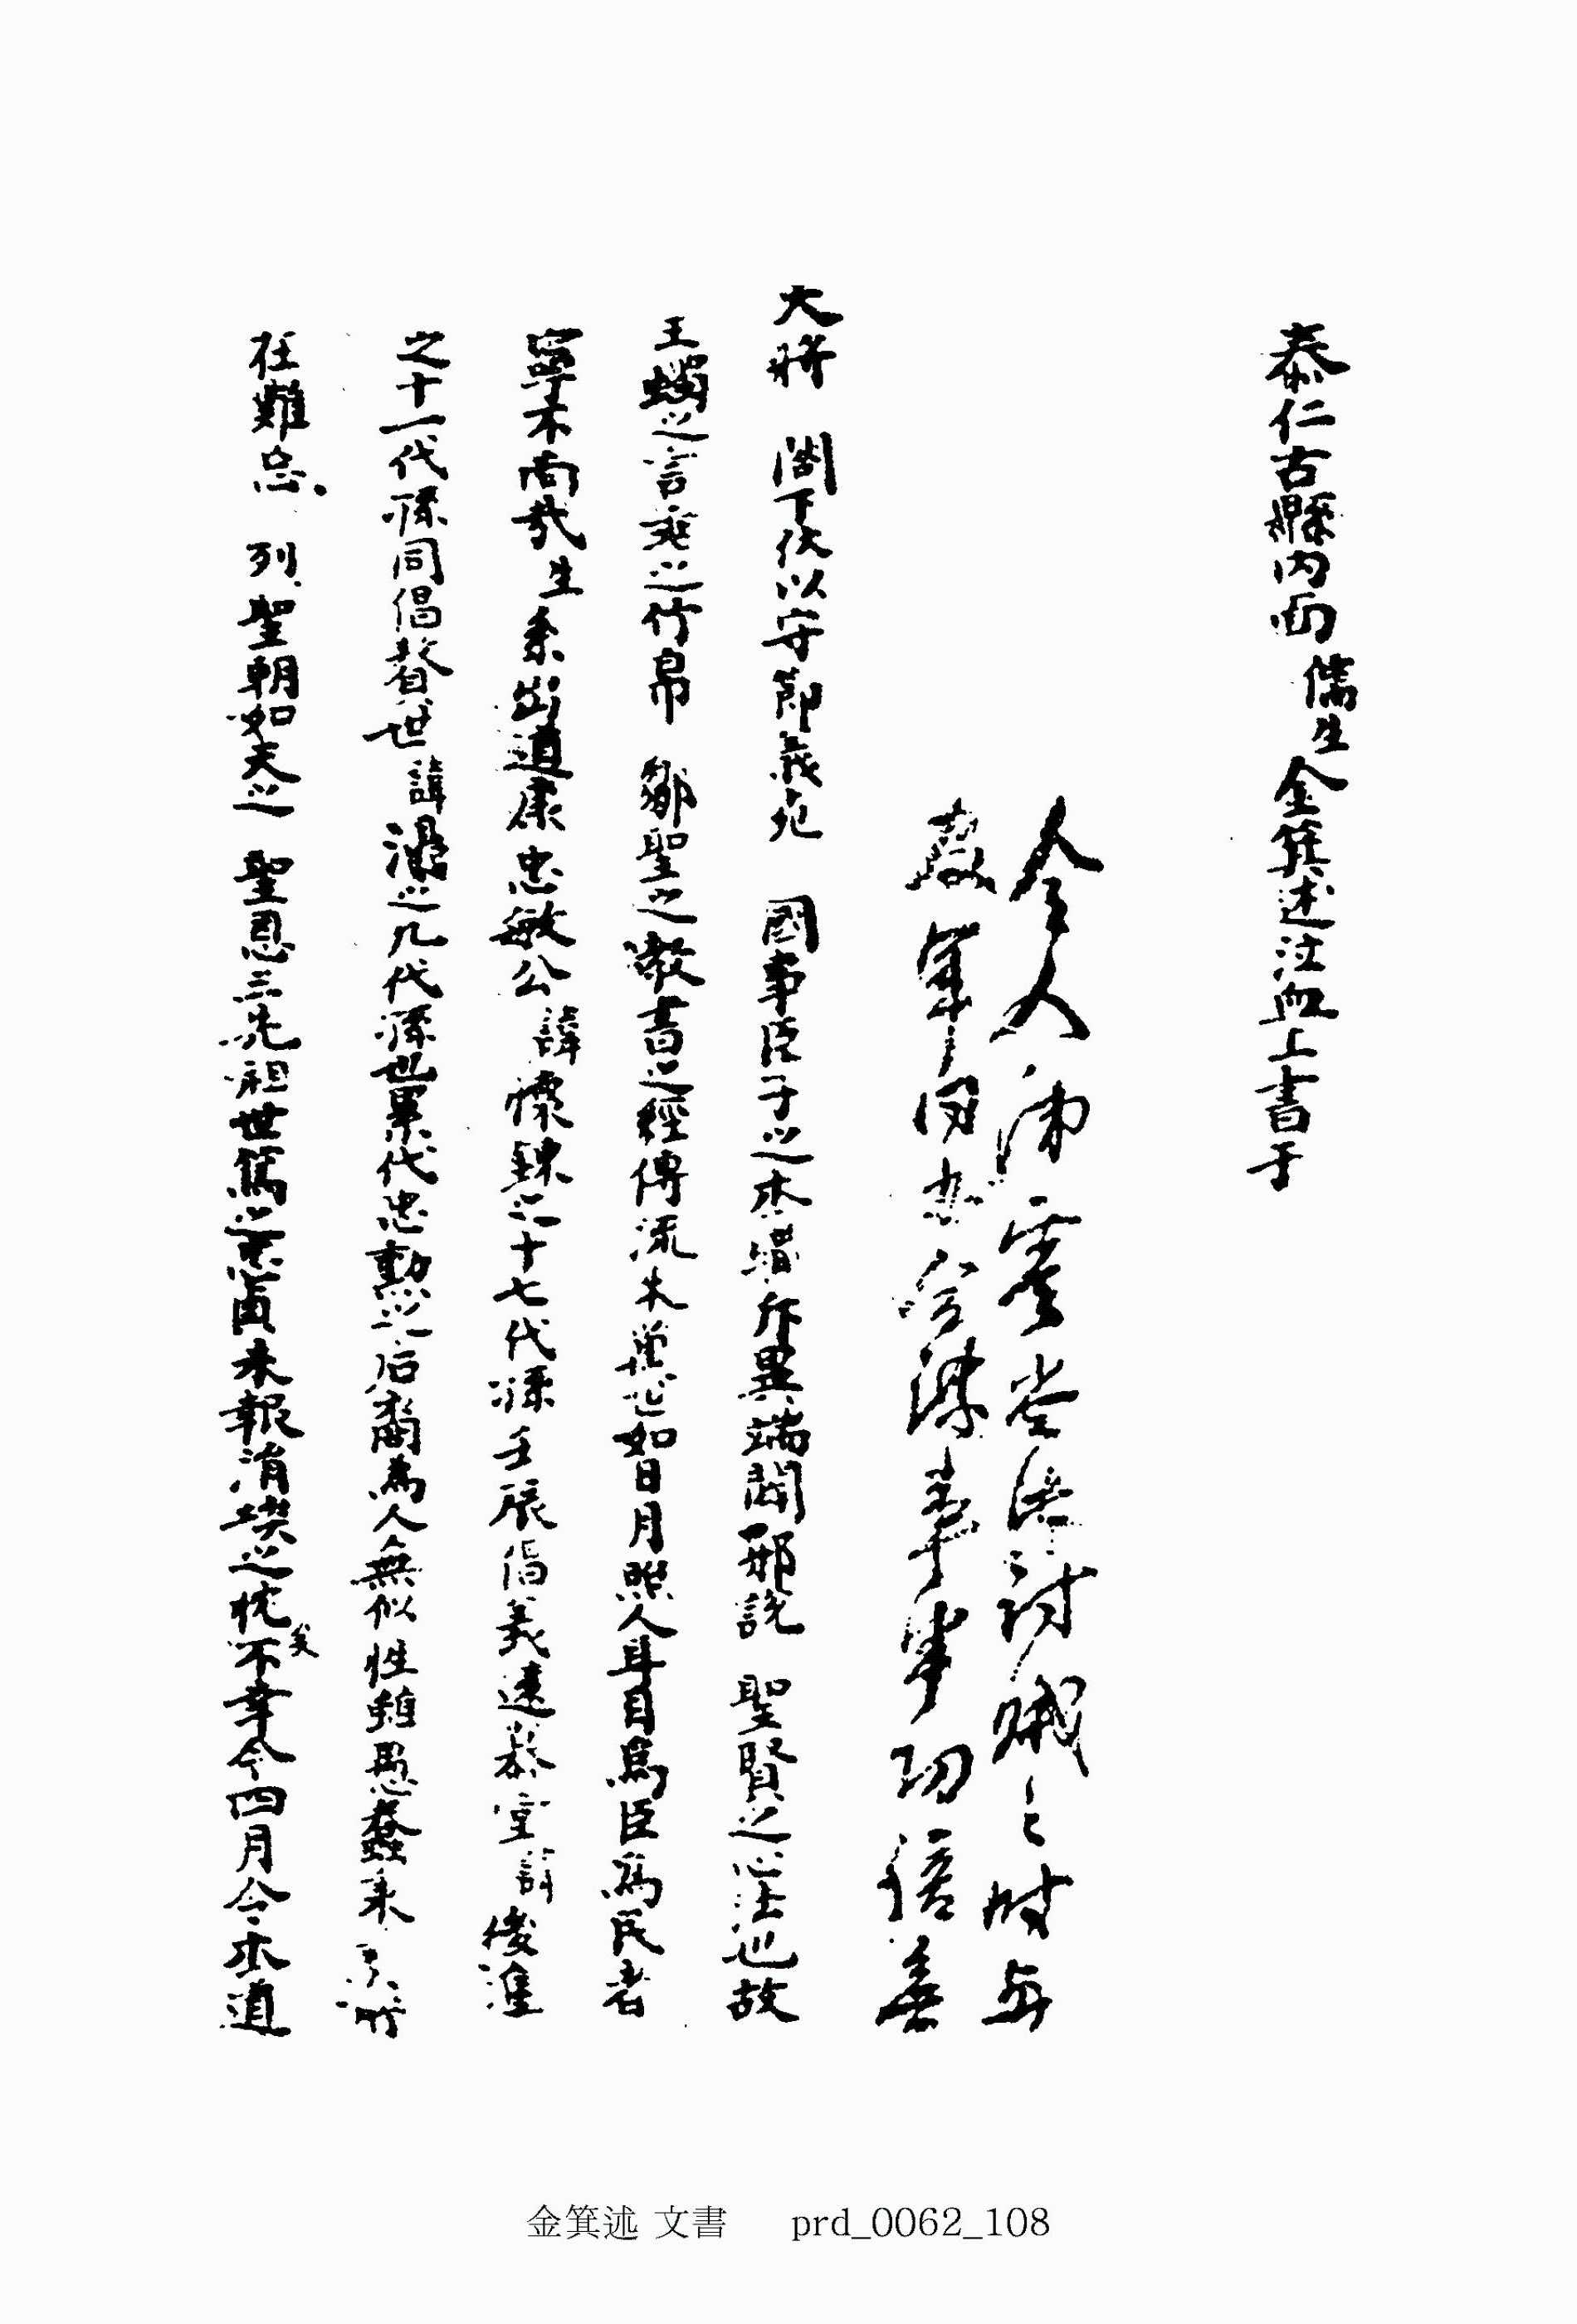 泰仁古縣內面儒生金箕述泣血上書于
令人沸寒 當此討賊之時與
處軍同力合謀善事事功倍善
大將 閤下伏以守節義死 國事臣子之本職斥異端闢邪說 聖賢之心法也故
王蠋之言垂之竹帛 鄒聖之敎書之經傳流末世如日月照人耳目爲臣爲民者
寧不尙哉生系出道康忠敏公諱懷鍊之十七代孫壬辰倡義遠慕堂諱後進
之十一代孫同倡贊世諱灠之九代孫也累代忠勳之后裔爲人無似性雖愚蠢秉彛所
在難忘 列聖朝如天之 聖恩三先祖世篤之忠貞未報涓埃之忱矣不幸今四月今本道
金箕述 文書 prd_0062_108